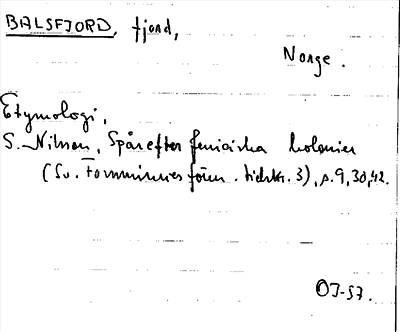 BALSFJORD, fjord,
Norge.
Etymologi,
S. Nilsson, Spår efter feniciska kolonier
(Sv. Fornminnesfören. tidskr. 3), s. 9, 30, 42.
OJ-57.